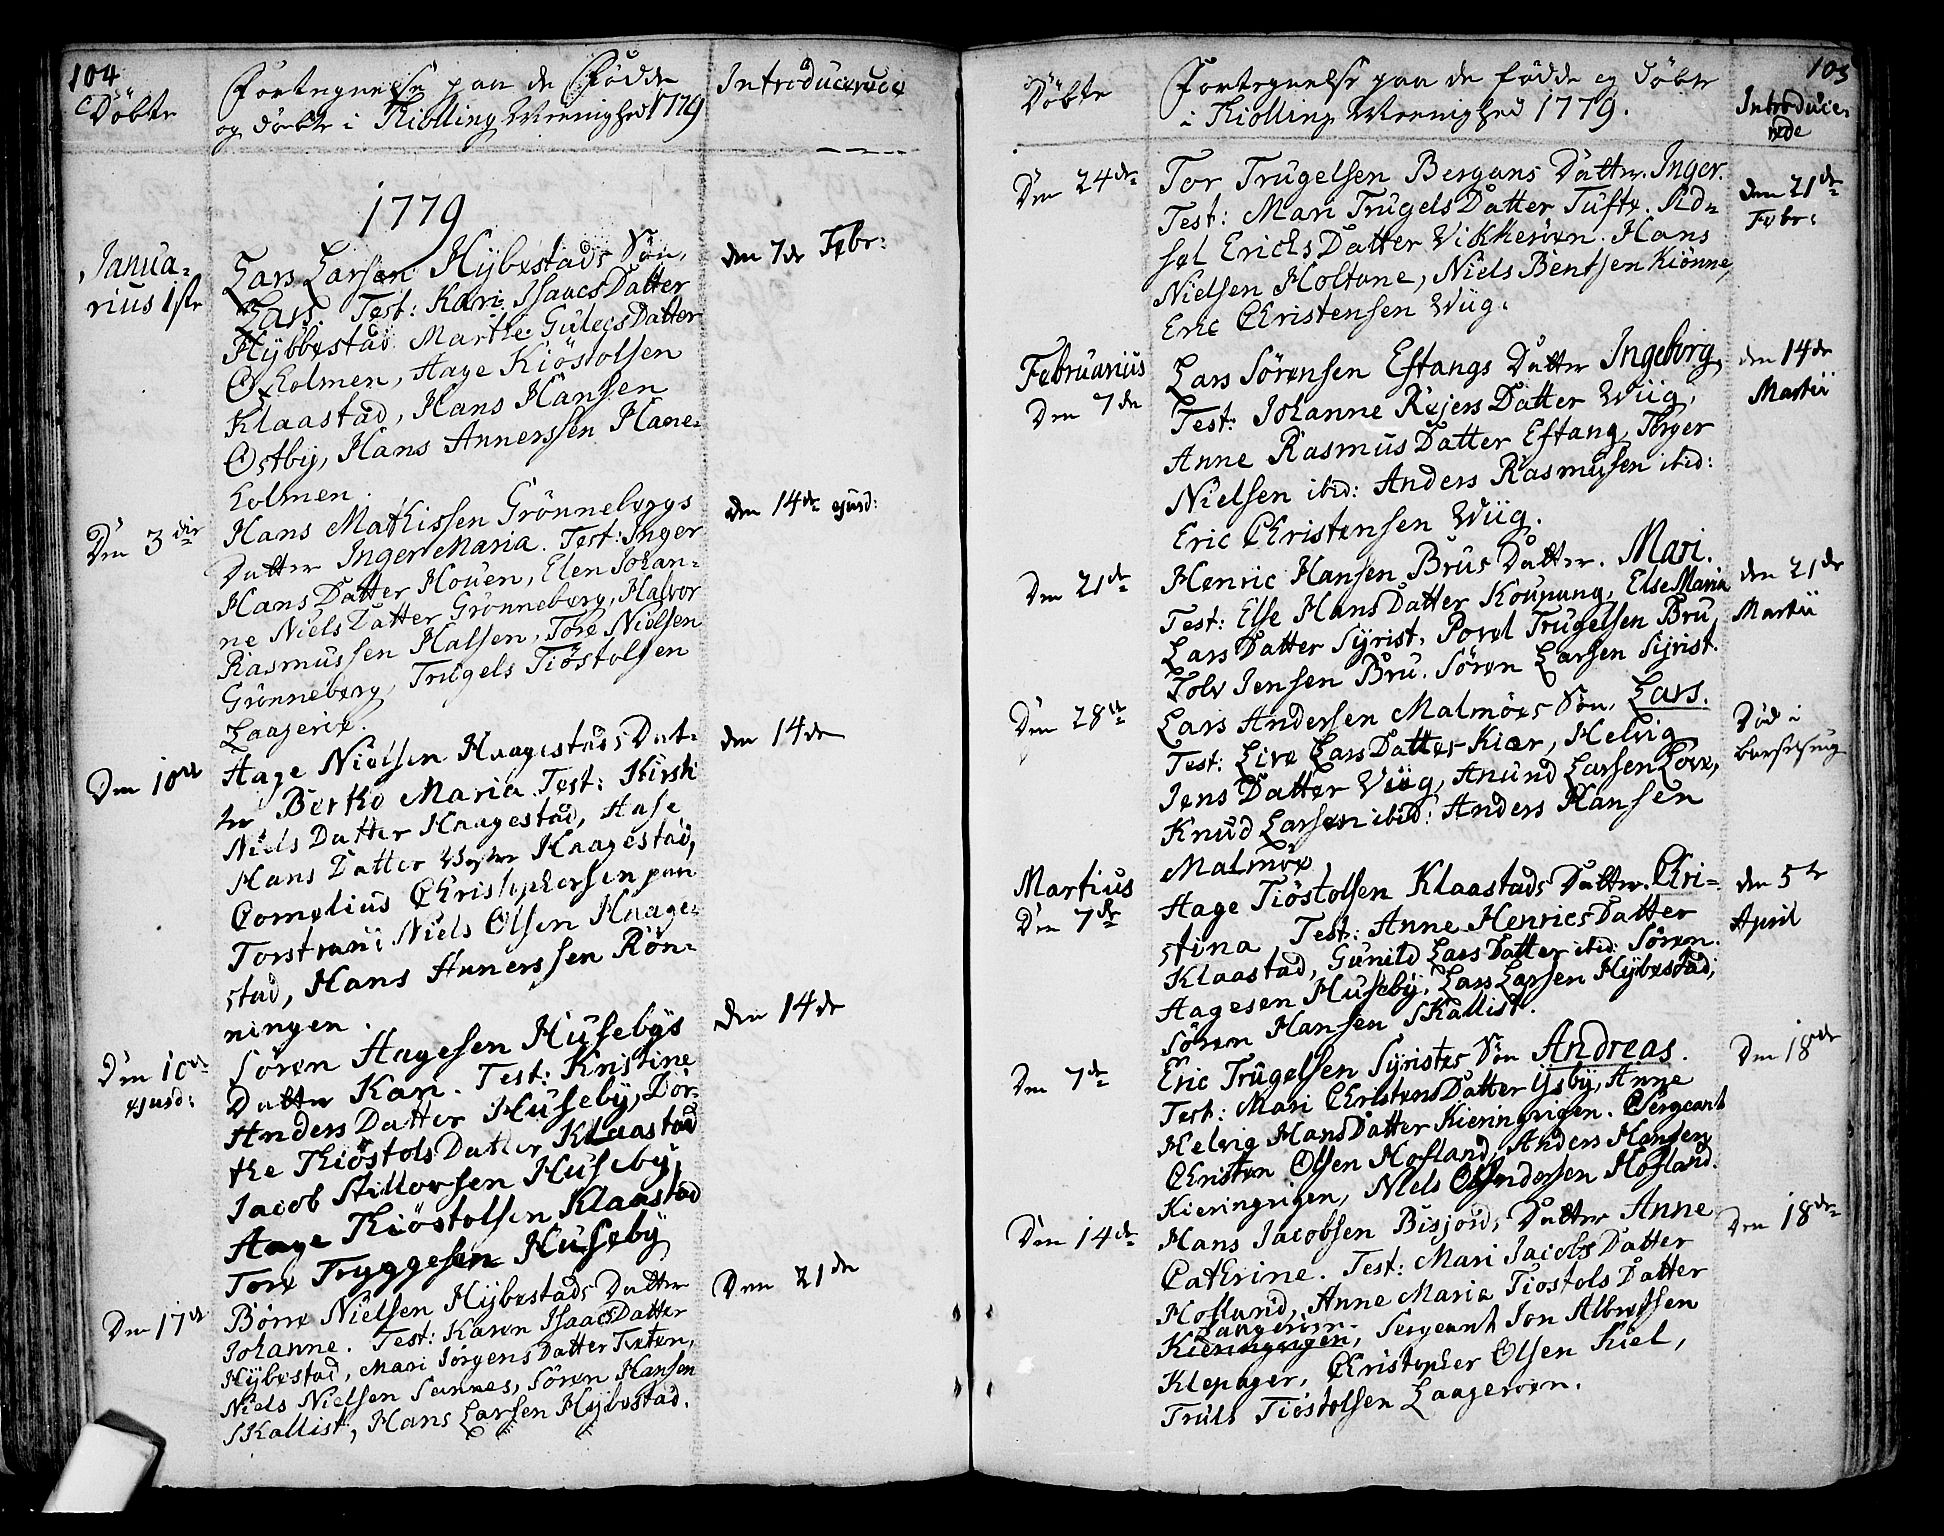 104
Döbte
Fortegnelse paa de Födde
og döbte i Kiölling Meenighed 1779
Introducerede
1779
Janua-
rius 1ste
Lars Larsen Hybestads Sön,
Lars. Test: Kari IsaacsDatter
Hybbestad. Marthe GulecsDatter
Østbye, Hans Annerssen Hane-
Klaastad, Hans Hansen
Holmen, Aage Kiöstolsen
holmen.
den 7de Febr:
Den 3die
Hans Mathissen Grönnebergs
Datter Inger Maria. Test: Inger
HansDatter Houen, Elen Johan-
ne NielsDatter Grönneberg, Halvor
Rasmussen Halsen, Tore Nielsen
Grönneberg, Trugels Tiöstolsen
Laagerie.
den 14de ejusd:
Den 10de
Hage Nielsen Haagestads Dat-
ter Berthe Maria. Test: Kirsti
NielsDatter Haagestad, Aase
HansDatter Haagestad,
Cornelius Christophersen paa
Torstrani Niels Olsen Haage-
stad, Hans Annerssen Rön-
ningen.
den 14de
Den 10de
ejusd:
Sören Hagesen Husebys
Datter Kari. Test: Kristine
AndersDatter Huseby, Dor-
the KiöstolsDatter Klaastad
Jacob Stillovsen Huseby,
Aage Kiöstolsen Klaastad
Tore Tryggesen Huseby
den 14de
Den 17de
Börre Nielsen Hybestads Datter
Johanne. Test: Karen IsaacsDatter
Hybestad, Mari JörgensDatter Tveten,
Niels Nielsen Sannes, Sören Hansen
Skallist, Hans Larsen Hybestad.
Den 21de
105
Döbte
Fortegnelse paa de födde og döbte
i Kiölling Meenighed 1779.
Introduce-
rede
Den 24de
Tor Trugelsen Bergans Datter. Inger.
Test: Mari TrugelsDatter Tufte. Sid-
sel ErichsDatter Vikkeröen. Hans
Nielsen Holtane, Niels Bentsen Kiönne,
Eric Christensen Wiig.
den 21de
Febr:
Februarius
Den 7de
Lars Sörensen Eftangs Datter Ingeborg,
Test: Johanne RejersDatter Wiig,
Anne RasmusDatter Eftang, Törger
Nielsen ibid: Anders Rasmussen ibid:
Eric Christensen Wiig.
den 14de
Martii
Den 21de
Henric Hansen Brus Datter. Mari.
Test: Else HansDatter Kounung, Else Maria
LarsDatter Syrist, Povel Trugelsen Bru,
Tolv Jensen Bru. Sören Larsen Syrist.
den 21de
Martii
Den 28de
Lars Andersen Malmöes Sön, Lars.
Test: Live LarsDatter Kiær, Helvig
JensDatter Viig, Anund Larsen Love,
Knud Larsen ibid: Anders Hansen
Malmöe.
Död i
barselseng
Martius
Den 7de
Hage Tiöstolsen Klaastads Datter. Chri-
stina Test: Anne HenricsDatter
Klaastad, Gunild LarsDatter ibid: Sören
Aagesen Huseby, Lars Larsen Hybestad,
Sören Hansen Skallist.
den 5te
April
Den 7de
Eric Trugelsen Syristes Sön Andreas.
Test: Mari ChristensDatter Ysby, Anne
Helvig HansDatter Kieringvigen. Sergeant
Christen Olsen Hofland, Anders Hansen
Kieringvigen, Niels Andersen Hofland.
Den 18de
Den 14de
Hans Jacobsen Bisjords Datter Anne
Cathrine. Test: Mari JacobsDatter
Hoflund, Anne Maria TiostolsDatter
Laageröen
Kieringvigen, Sergeant Jon Albretsen
Klepager, Christopher Olsen Kiel,
Truls Tiöstolsen Laageröen.
Den 18de